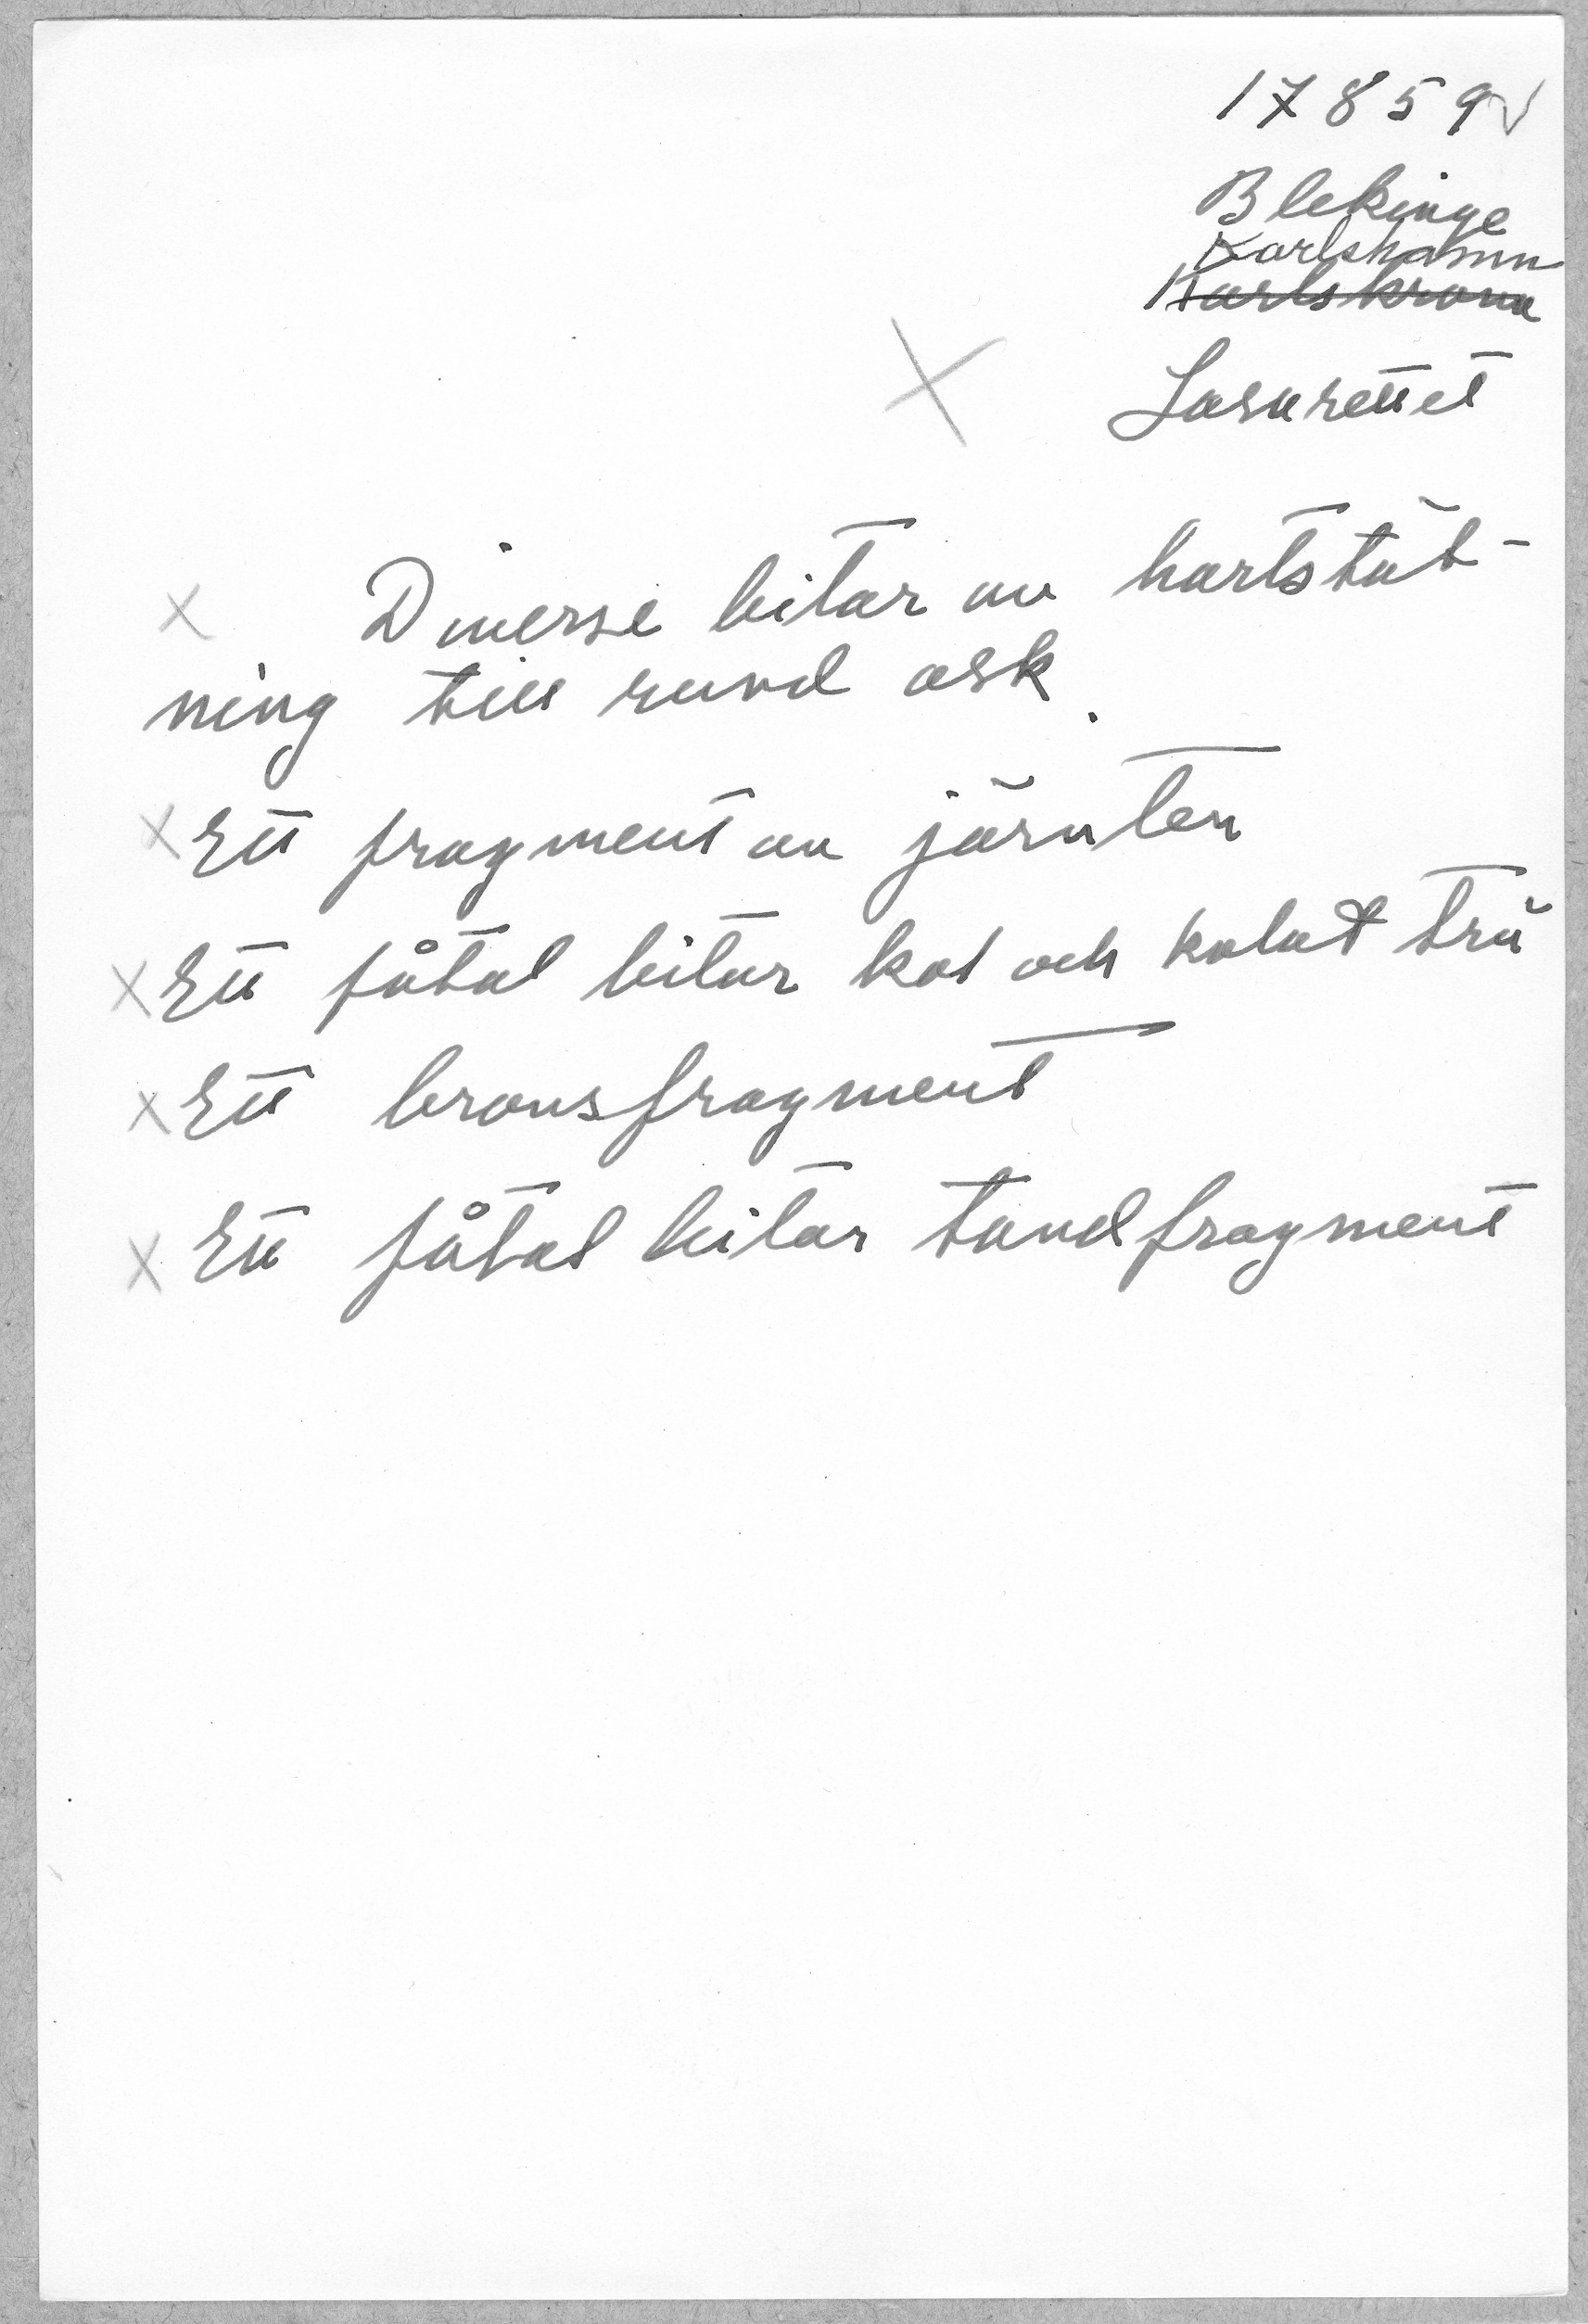 17859 √
Blekinge
Karlshamn
Karlskrona
Lasarettet
x Diverse bitar av hartstät-
ning till rund ask.
x Ett fragment av järnten
x Ett fåtal bitar kol och kolat trä
x Ett bronsfragment
x Ett fåtal bitar tandfragment